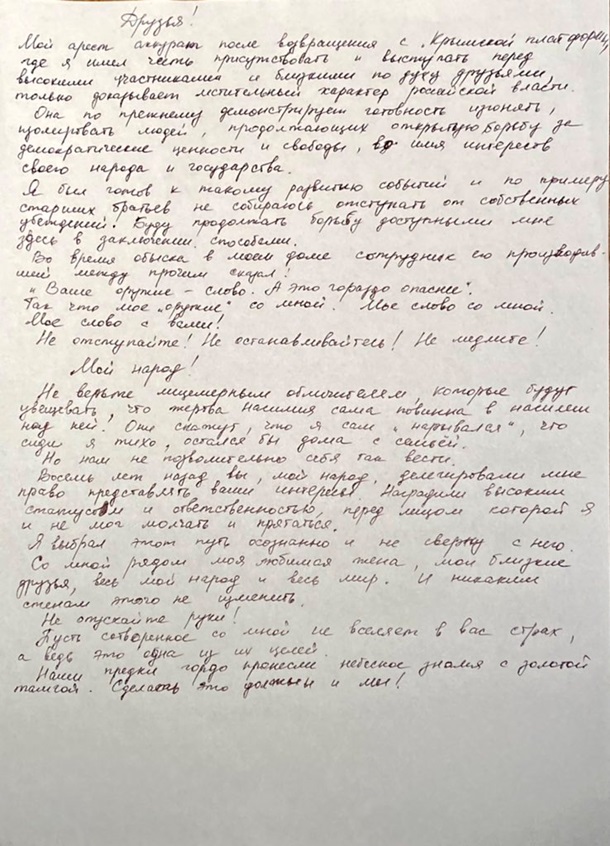 Друзья!
Мой арест аккурат после возвращения с „Крымской платформы,
где я имел честь присутствовать и выступать перед
высокими участниками и близкими по духу друзьями,
только доказывает мстительный характер российской власти.
Она по прежнему демонстрирует готовность изгонять,
изолировать людей, продолжающих открытую борьбу за
демократические ценности и свободы, во имя интересов
своего народа и государства.
Я был готов к такому развитию событий и по примеру
старших братьев не собираюсь отступать от собственных
убеждений. Буду продолжать борьбу доступными мне
здесь в заключении способами.
Во время обыска в моем доме сотрудник его производив-
ший между прочим сказал:
„Ваше оружие – слово. А это гораздо опасние".
Так что мое „оружие" со мной. Мое слово со мной.
Мое слово с вами!
Не отступайте! Не останавливайтесь! Не медлите!
Мой народ!
Не верьте лицемерным обличителям, которые будут
увещевать, что жертва насилия сама повинна в насилии
над ней. Они скажут, что я сам „нарывался", что
сиди я тихо, остался бы дома с семьей.
Но нам не позволительно себя так вести.
Восемь лет назад вы, мой народ, делегировали мне
право представлять ваши интересы. Наградили высоким
статусом и ответственностью, перед лицом которой я
и не мог молчать и прятаться.
Я выбрал этот путь осознанно и не сверну с него.
Со мной рядом моя любимая жена, мои близкие
друзья, весь мой народ и весь мир. И никаким
стенам этого не изменить.
Не опускайте руки!
Пусть сотворенное со мной не вселяет в вас страх,
а ведь это одна из их целей.
Наши предки гордо пронесли небесное знамя с золотой
тамгой. Сделать это должны и мы!